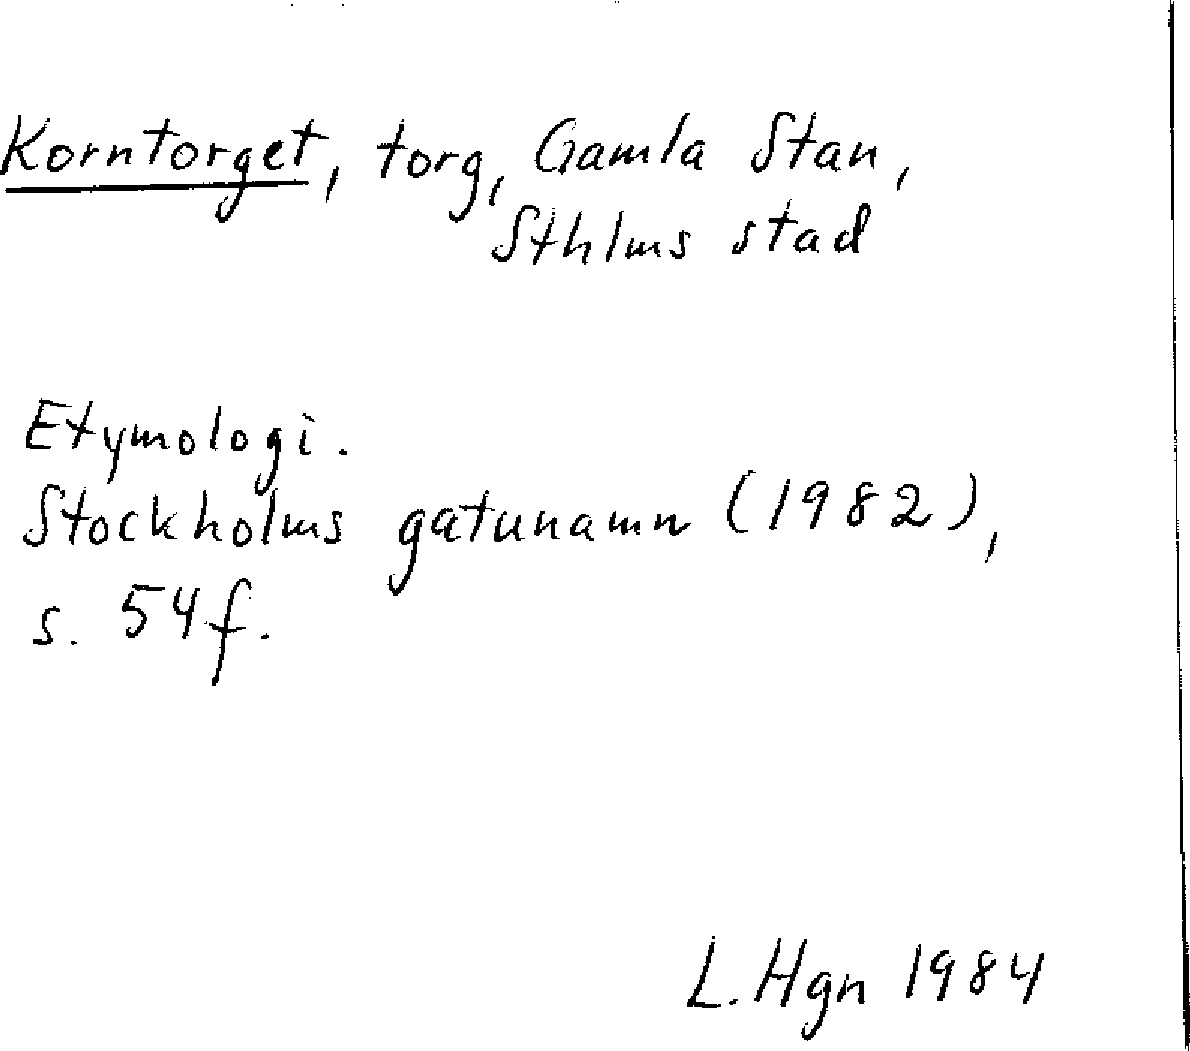 Korntorget, torg, Gamla Stan,
Sthlms stad
Etymologi.
Stockholms gatunamn (1982),
s. 54f.
L. Hgn 1984